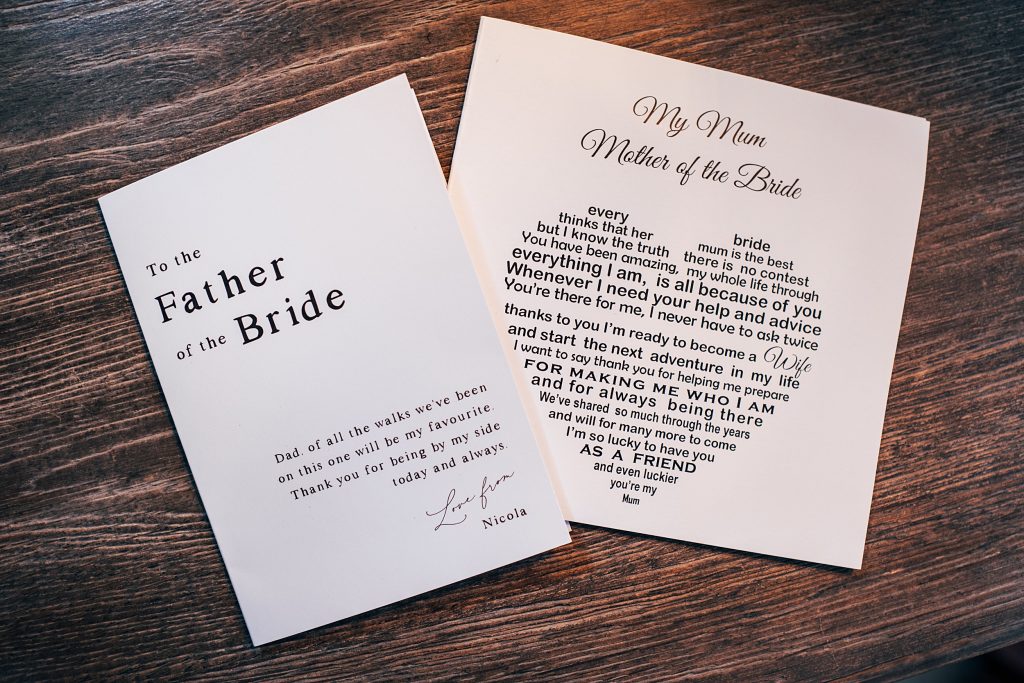 To the
Father
of the Bride
Dad, of all the walks we've been
on this one will be my favourite.
Thank you for being by my side
today and always.
Love from
Nicola
My Mum
Mother of the Bride
every bride
thinks that her mum is the best
but I know the truth there is no contest
You have been amazing, my whole life through
everything I am, is all because of you
Whenever I need your help and advice
You're there for me, I never have to ask twice
thanks to you I'm ready to become a Wife
and start the next adventure in my life
I want to say thank you for helping me prepare
FOR MAKING ME WHO I AM
and for always being there
We've shared so much through the years
and will for many more to come
I'm so lucky to have you
AS A FRIEND
and even luckier
you're my
Mum